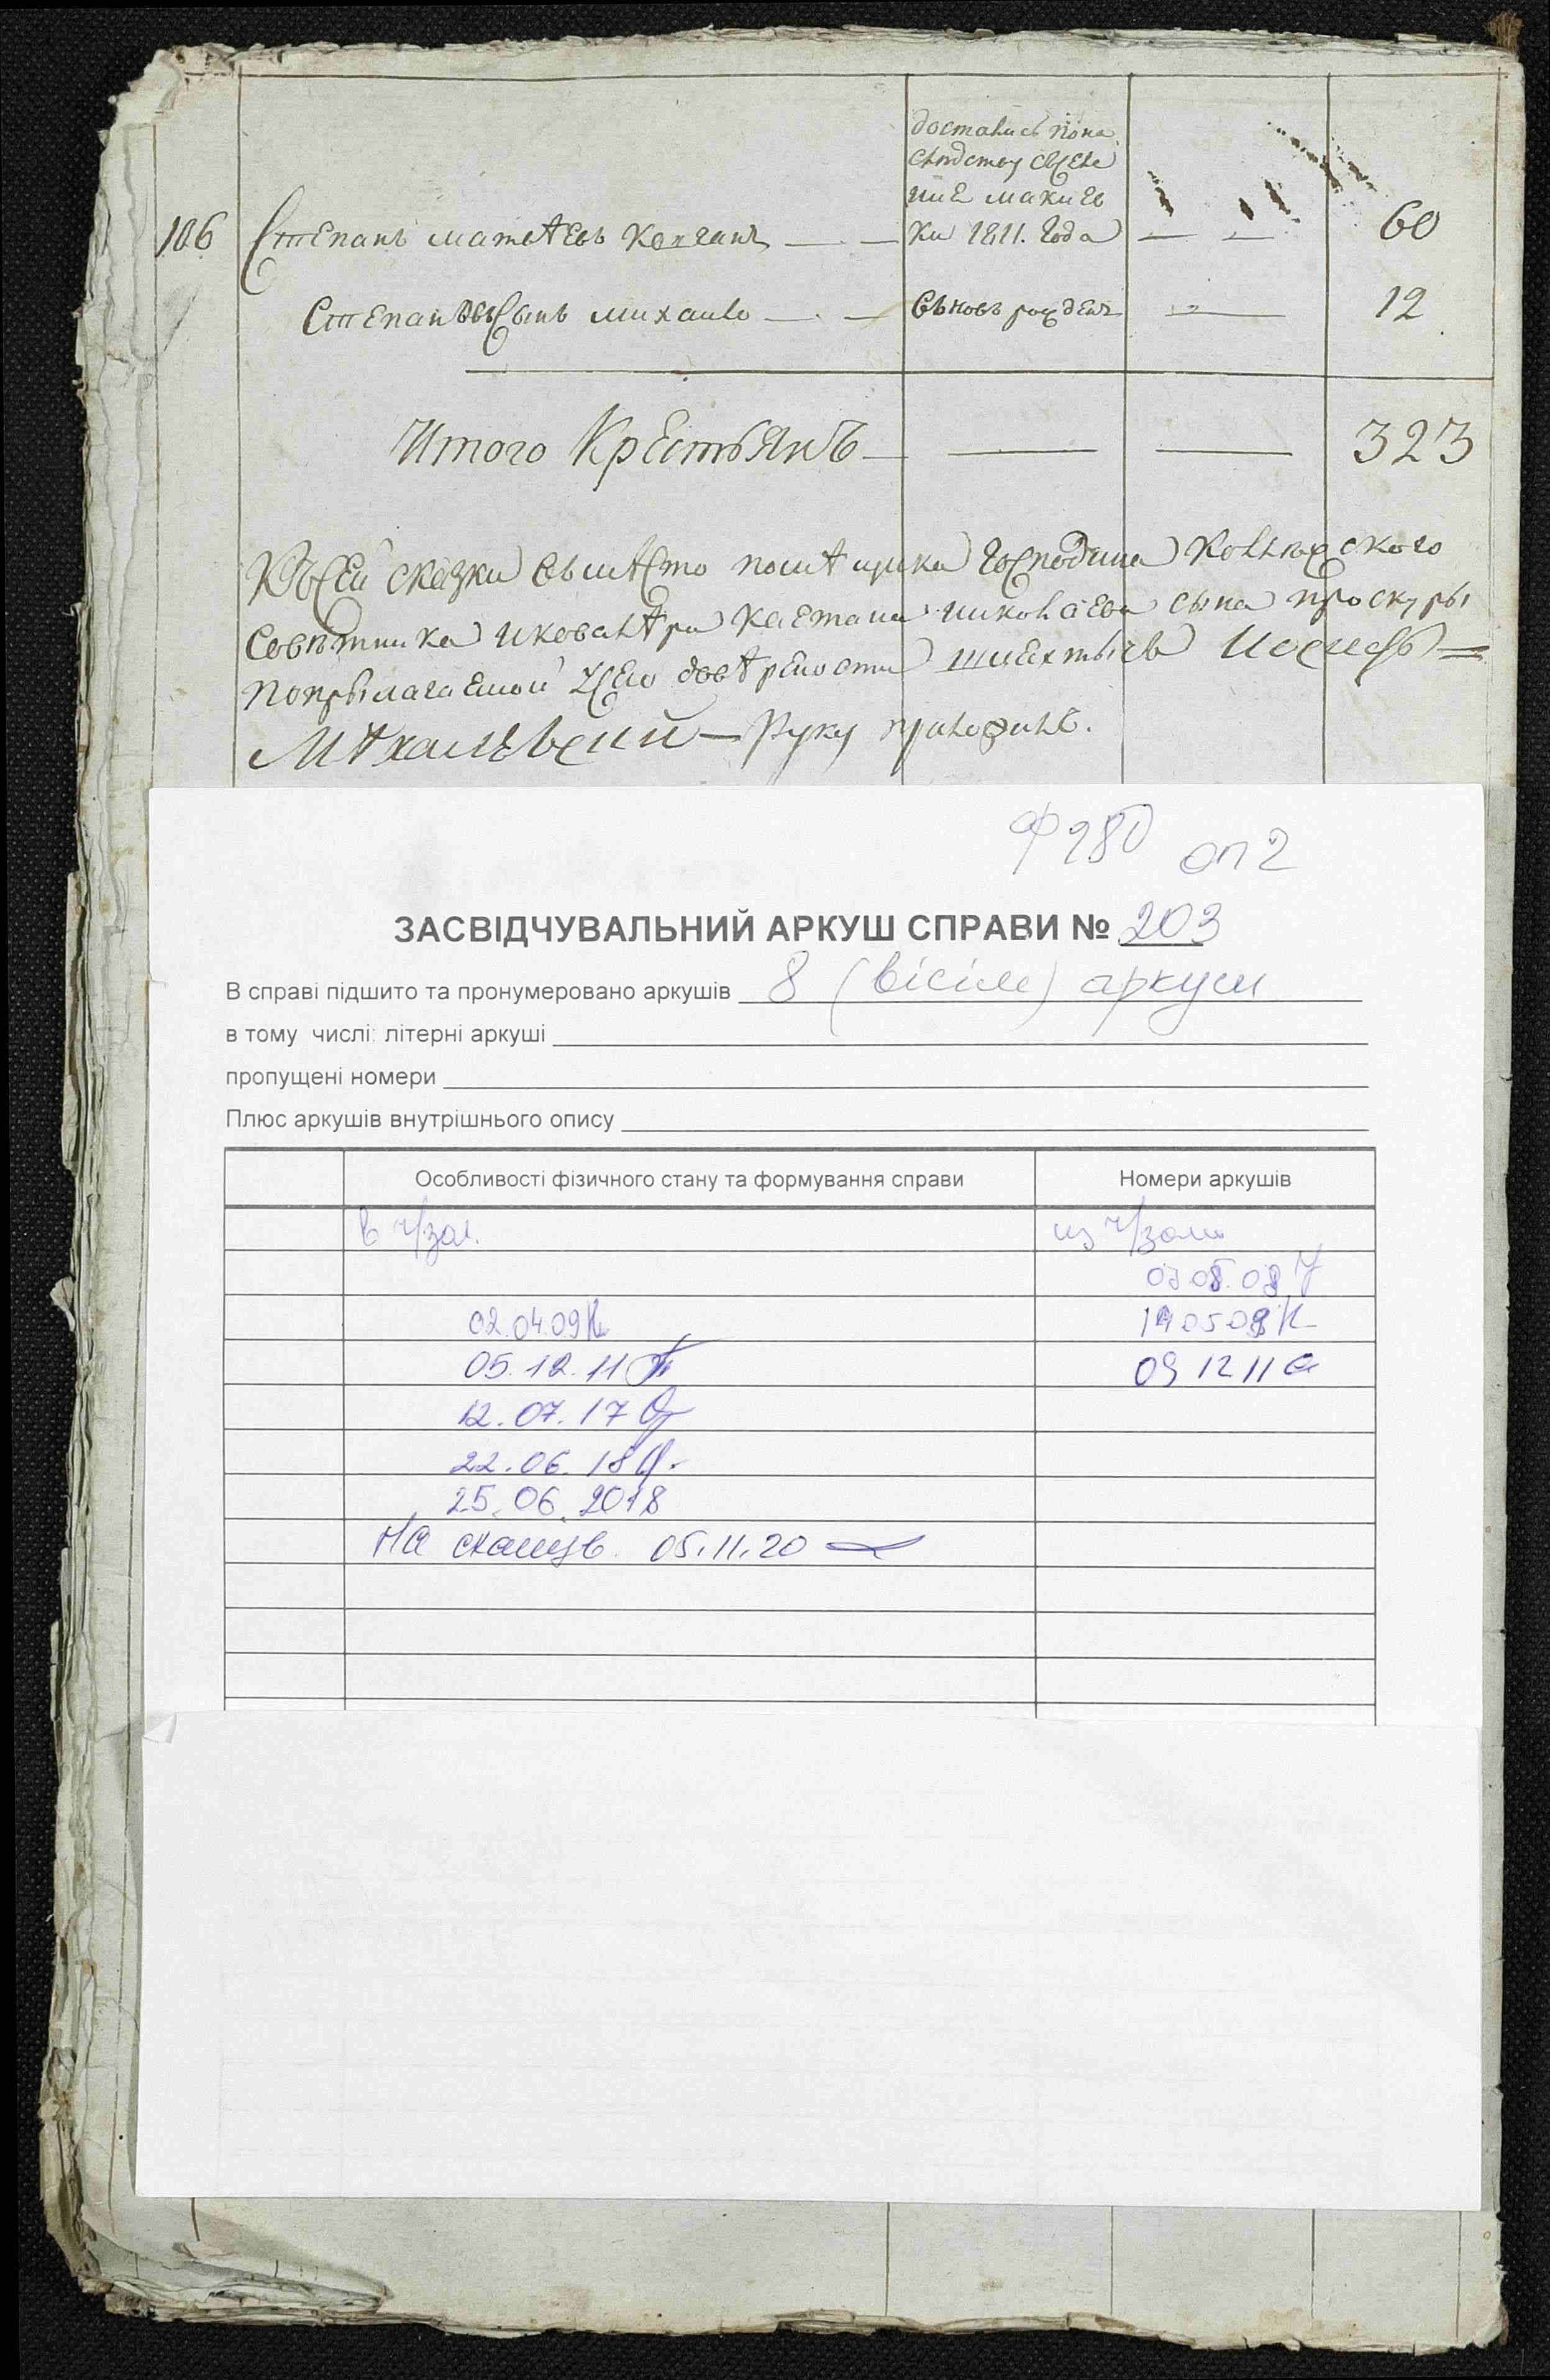 достались по на
следству въ селе
ние Макиев
106 Степанъ Матвѣевъ — — ки 1811. года — — 60
Степановъ Сынъ Михайло — — вновь рожден — 12
Итого Крестьянъ — — — 323
Къ сей сказки вмѣсто помѣщика Господина
Совѣтника и ковалѣра Каетана Николаева сына Проскуры
по прилагаемой у сего довѣрености шлехтычь Иосифъ
— Руку приложилъ.
Ф 280 оп 2
ЗАСВІДЧУВАЛЬНИЙ АРКУШ СПРАВИ № 203
В справі підшито та пронумеровано аркушів 8 (вісім) аркуш
в тому числі: літерні аркуші
пропущені номери
Плюс аркушів внутрішнього опису
Особливості фізичного стану та формування справи Номери аркушів
в ч/зал. из ч/зала
02.04.09 190508
05.12.11 09 12 11
12.07.17
22.06.18
25.06.2018
на сканув. 05.11.20